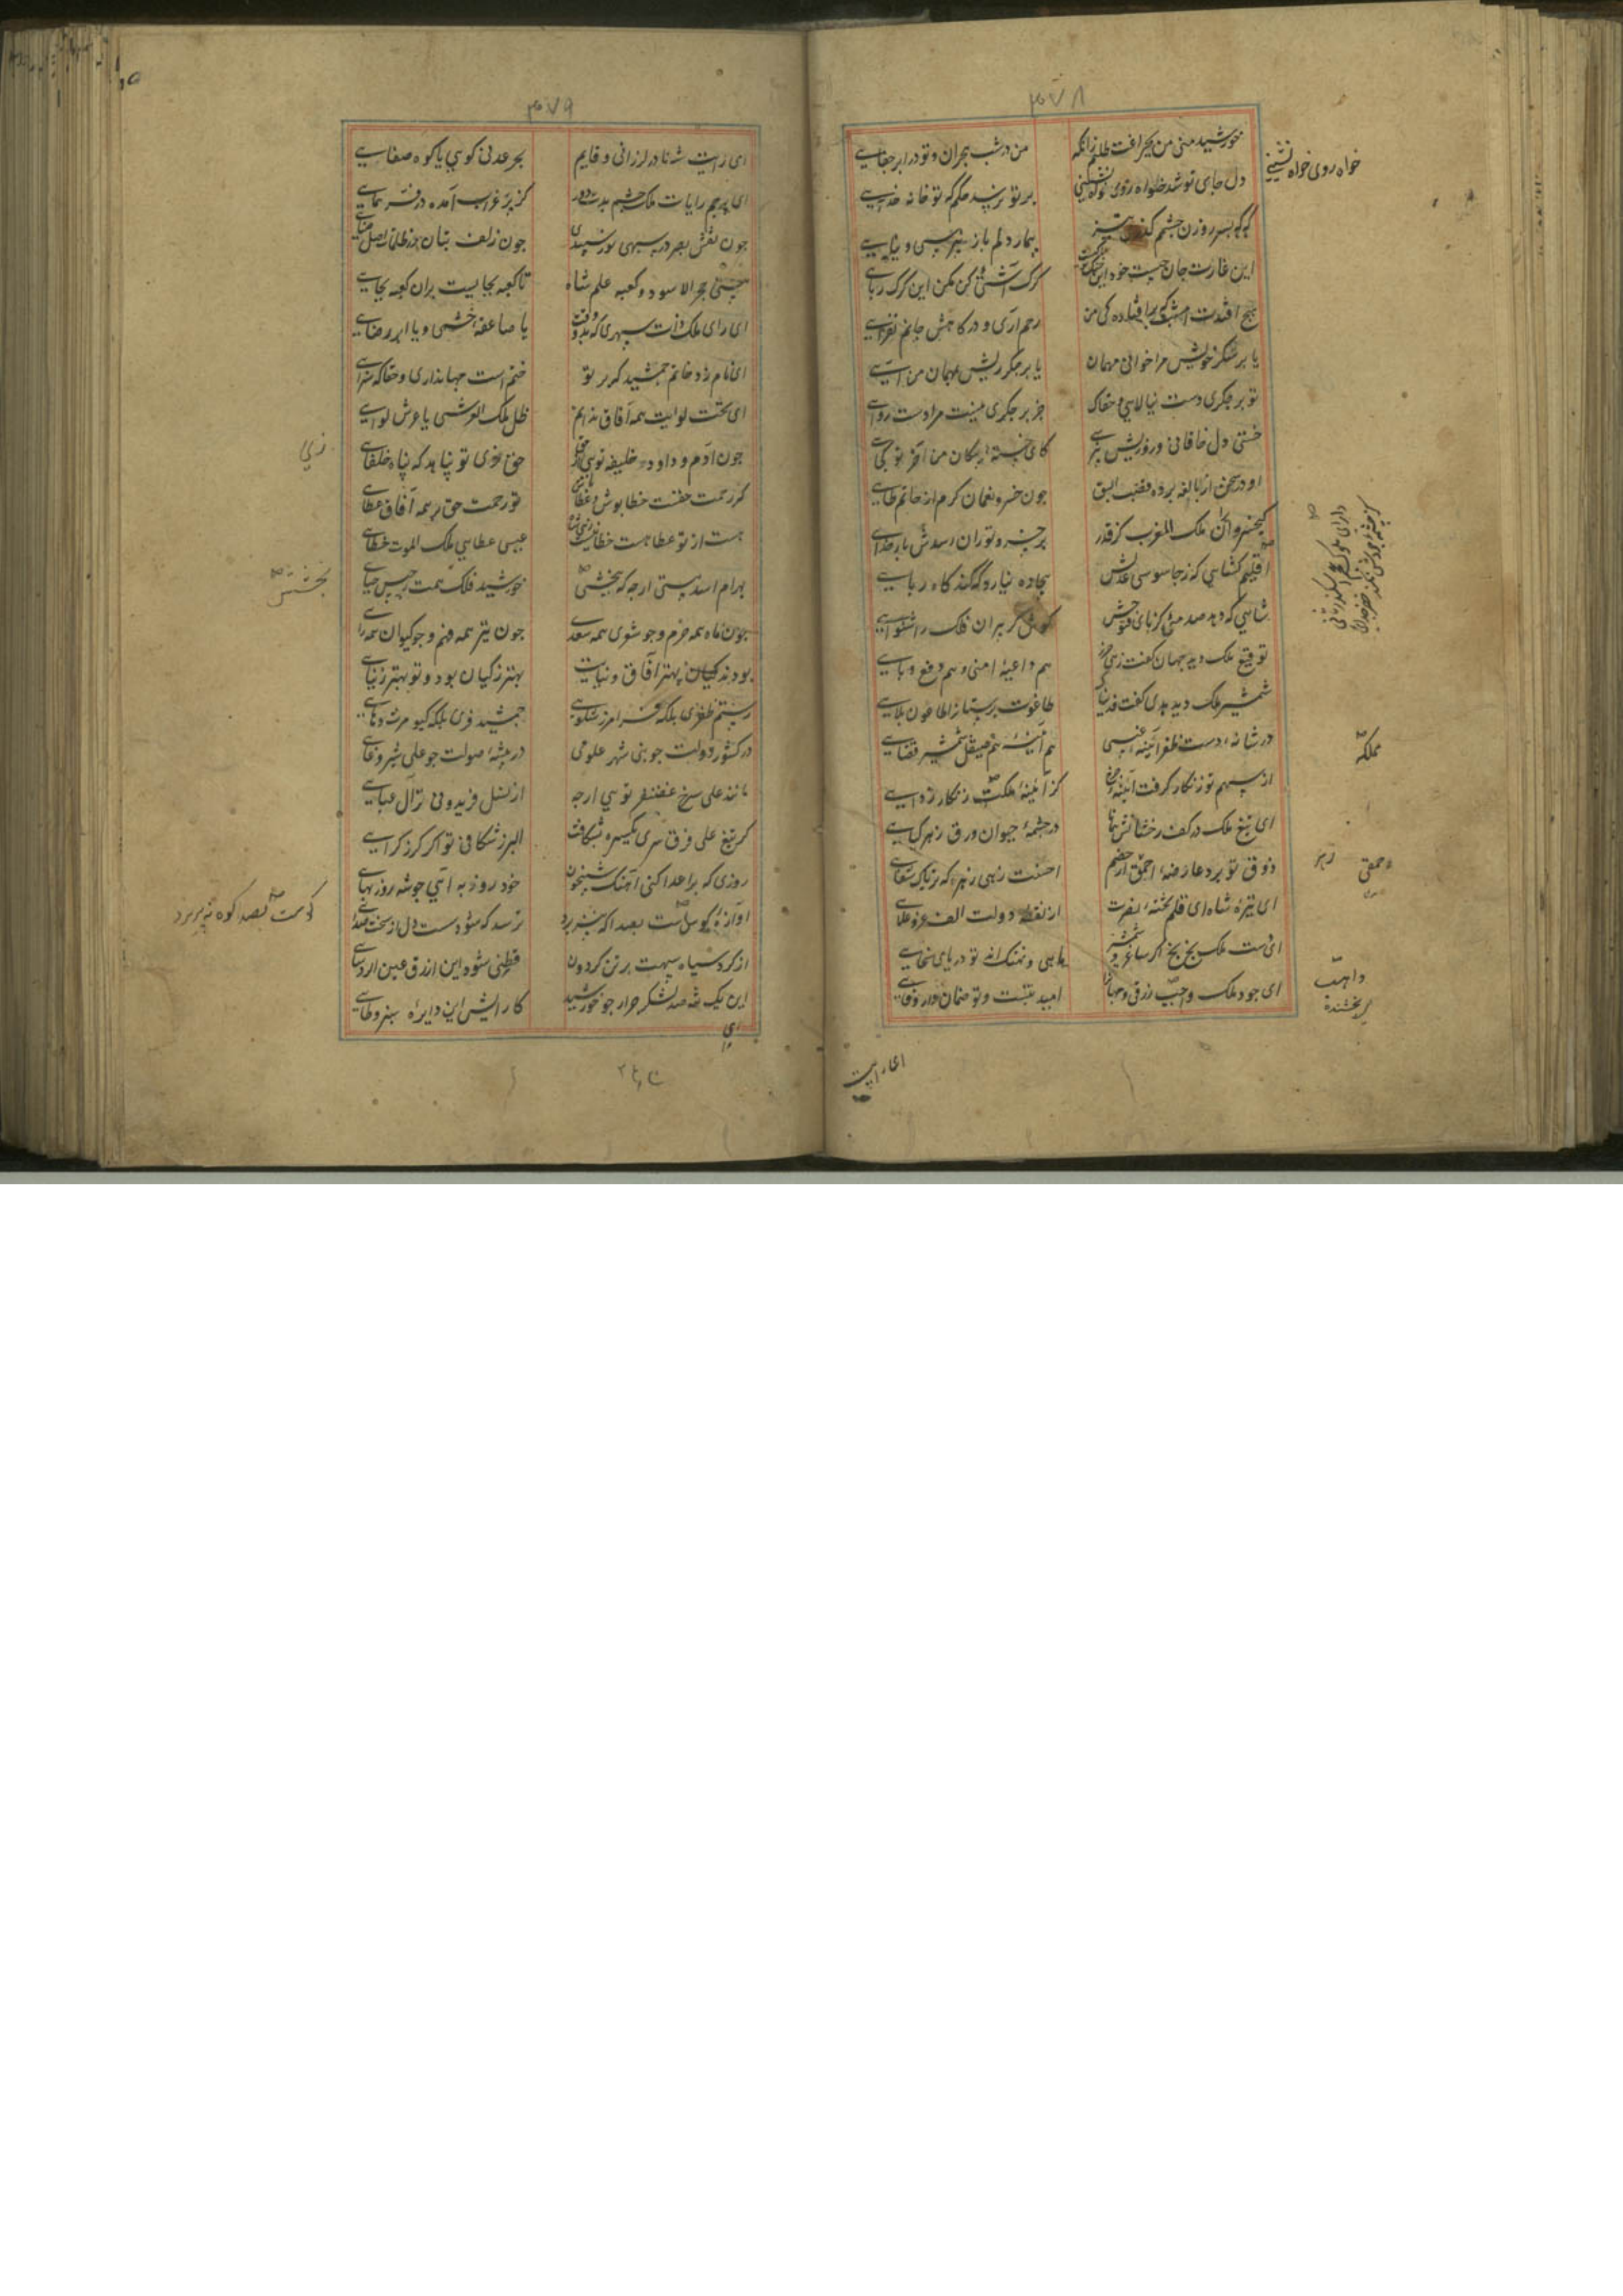 ۳۷۸
خورشید منی من بچراغت طلبم زانکه
من در شب هجران و تو در ابر جفایی
دل جای تو شد خواه روی خواه نشینی
بر تو نرسد حکم که تو خانه خدایی
خواه روی خواه نشینی
که که بسر روزن چشمم گذری نیز
بیمار دلم باز نپرسی و نیایی
این غارت جان چیست خود این جنگ
گرگ آشتی کن مکن این گرگ ربایی
هیچ افتدت امشب که بر افتاده کی من
رحم آری و در کاهش جانم نفزایی
یا بر شکر خویش مرا خوانی مهمان
یا بر جگر ریش مهمان من آیی
تو بر جگری دست نیالایی و حقا که
جز بر جگری نیست مرا دست روایی
خستی دل خاقانی و روزیش نپرسی
کای خسته پیکان من آخر تو کجایی
او در سخن از نابغه برده قصب السبق
چون خسرو نعمان کرم از حاتم طایی
کیخسرو ایران ملک المغرب کز قدر
بر خسرو توران سدش بار خدایی
اقلیم گشایی که ز جاسوسی عدلش
بیجاده نیارد که کند کاه ربایی
شاهی که دهد صدمه کز نای فتوحش
گوش کر بیران فلک را شنوایی
توقیع ملک دید جهان گفت زهی حرز
هم داعیه امنی و هم دفع وبایی
شمشیر ملک دید هدی گفت فدیناک
طاغوت پرستان را طاعون بلایی
در شانه دست ظفر آیینه غیبی
هم آینه هم صیقل شمشیر قضایی
مملکه
از سهم تو زنگار گرفت آینه چرخ
کز آینه مملکت زنگار زدایی
ای تیغ ملک در کف رخشانش همانا
در چشمه حیوان ورق زهر گیایی
ذوق تو برد عارضه احمقی از خصم
احسنت زهی زهر که تریاک شفایی
ای نیزه شاه ای قلم تخته نصرت
از نقطه دولت الف عز و علایی
ای دست ملک بخ بخ اگر ساغر و شمشیر
ماهی و نهنگ‌اند تو دریای سخایی
ای جود ملک واجب رزقی و جهان را
امید بتست و تو ضمان دار وفایی
واهب
بخشنده
ای رایت
۳۷۹
ای رایت شه نا در لرزانی و قایم
بحر عدنی گویی یا کوه صفایی
ای پرچم رایات ملک چشم بدت دور
کز پر غراب آمده و فر همایی
چون نقش بصر در سیهی نور سپیدی
چون زلف بتان در ظلمات اصل ضیایی
جنسی حجر الاسود و کعبه علم شاه
تا کعبه بجایست بران کعبه بجایی
ای رای ملک ذات سپهری که بدو وقت
یا صاعقه خشمی و یا ابر رضایی
ای نام زد خاتم جمشید که بر تو
ختم است جهانداری و حقا که سزایی
ای تخت لوایت همه آفاق ندانم
ظل ملک العرشی یا عرش لوایی
چون آدم و داود خلیفه تویی از حق
حق زی تو پناهد که پناه خلفایی
زی
گر رحمت حقت خطاپوش و عطابخش
تو رحمت حق بر همه آفاق عطایی
هست از تو عطا هست خطا نیست
عیسی عطایی ملک الموت خطایی
بهرام اسد هستی ار چه که بخشش
خورشید فلک همت برجیس حیایی
بخشش
چون ماه همه خرم و چو شوی همه سعدی
چون تیر همه فهم و چو کیوان همه رایی
بودند کیان بهتر آفاق و نیایت
بهتر ز کیان بود و تو بهتر ز نیایی
رستم ظفری بلکه فرامرز شکوهی
جمشید فری بلکه کیومرث دهایی
در کشور دولت چو نبی شهر علومی
در بیشه صولت چو علی شیر وغایی
مانند علی سرخ غضنفر تویی ار چه
از نسل فریدونی نز آل عبایی
گر تیغ علی فرق سری یکسره بشکافت
البرز شکافی تو اگر گرز گرایی
روزی که بر اعدا کنی آهنگ شبیخون
خود روز به آیی چو شه روز بهایی
آوازه کوست بصدا که نپذیرد
ترسد که شود سست دل از سخت صدایی
کوست بصدا کوه نپذیرد
از گرد سیاه سپهت بر تن گردون
قطنی شود این ازرق عین اردایی
این یک تنه صد لشکر جرار چو خورشید
کارایش این دایره سبز وطایی